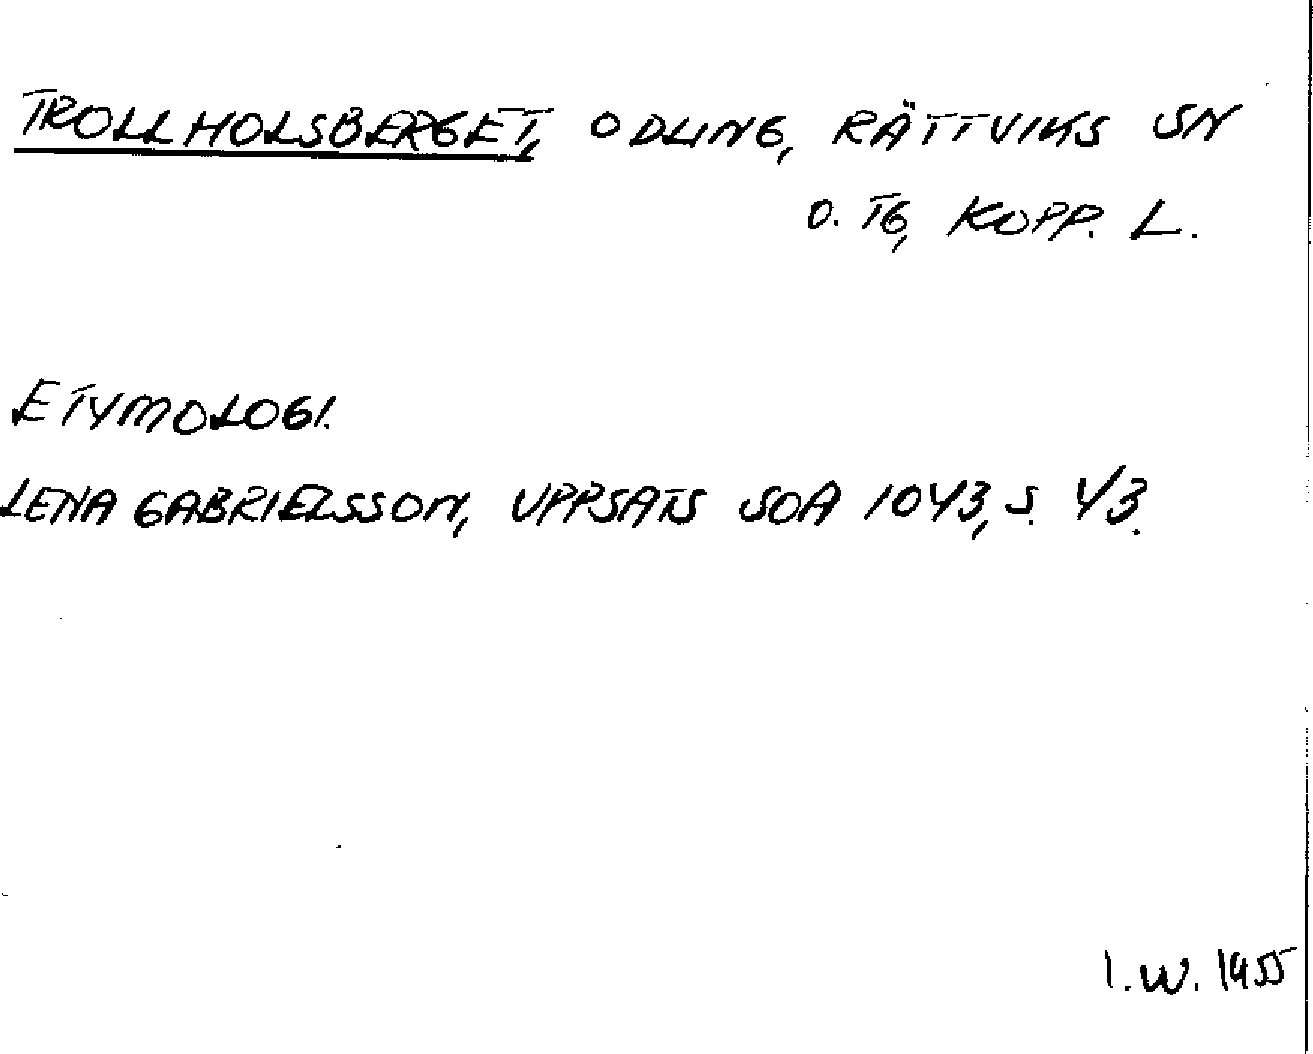 TROLLHOLSBERGET, ODLING, RÄTTVIKS SN
O. TG, KOPP. L.
ETYMOLOGI.
LENA GABRIELSSON, UPPSATS SOA 1043, S. 43.
I.W. 1955